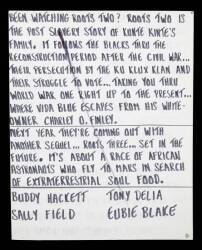 BEEN WATCHING ROOTS TWO? ROOTS TWO IS
THE POST SLAVERY STORY OF KUNTE KINTE'S
FAMILY. IT FOLLOWS THE BLACKS THRU THE
RECONSTRUCTION PERIOD AFTER THE CIVIL WAR...
THEIR PERSECUTION BY THE KU KLUX KLAN AND
THEIR STRUGGLE TO VOTE... TAKING YOU THRU
WORLD WAR ONE RIGHT UP TO THE PRESENT...
WHERE VIDA BLUE ESCAPES FROM HIS WHITE-
OWNER CHARLEY O. FINLEY.
NEXT YEAR THEY'RE COMING OUT WITH
ANOTHER SEQUEL... ROOTS THREE... SET IN THE
FUTURE. IT'S ABOUT A RACE OF AFRICAN
ASTRONAUTS WHO FLY TO MARS IN SEARCH
OF EXTRATERRESTRIAL SOUL FOOD.
BUDDY HACKETT TONY DELIA
SALLY FIELD EUBIE BLAKE